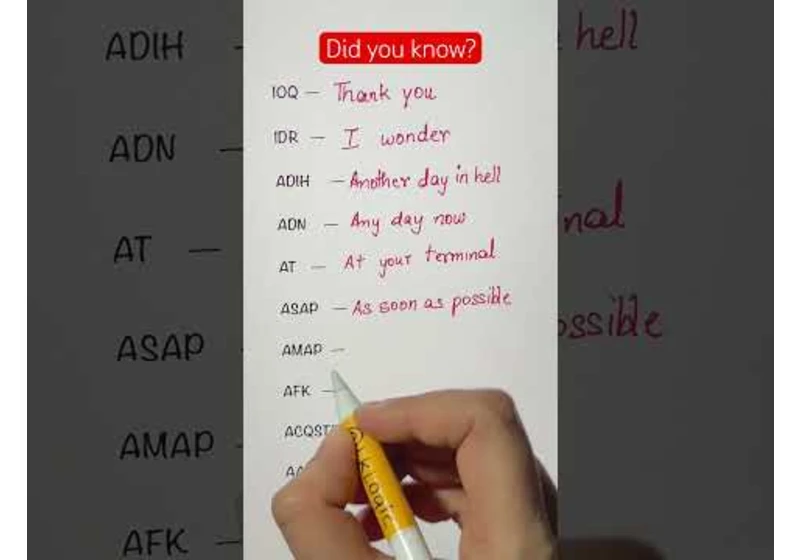 Did you know?
IOQ — Thank you
IDR — I wonder
ADIH — Another day in hell
ADN — Any day now
AT — At your terminal
ASAP — As soon as possible
AMAP —
AFK —
ACQST
AA
ADIH —
ADN —
AT —
ASAP
AMAP
AFK —
hell
nal
ossible